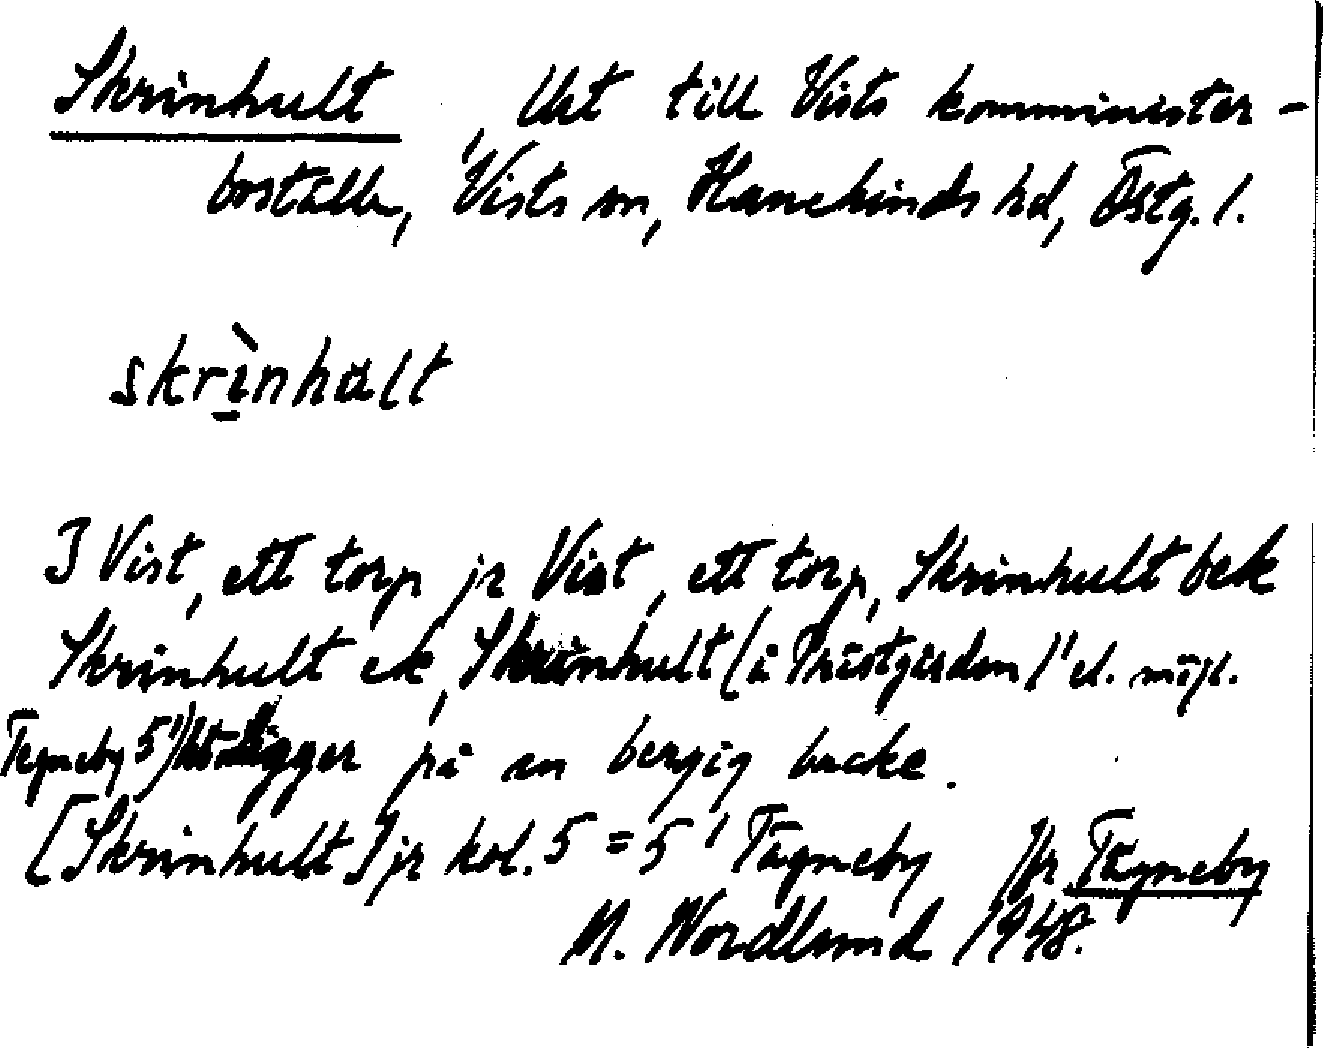 Skrinhult, Utt till Vists komminister-
boställe, Vists sn, Hanekinds hd, Östg. l.
skrìnhult
J Vist, ett torp jr Vist, ett torp, Skrinhult bek
Skrinhult ek, Skrinhult (å Prästgården)" el. möjl.
Tägneby 5") ligger på en bergig backe.
[Skrinhult] jr kol. 5 = 5 Tägneby Jfr Tägneby
M. Nordlund 1948.